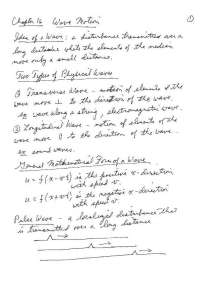 Chapter 16 Wave Motion ①
Idea of a Wave: a disturbance transmitted over a
long distance while the elements of the medium
move only a small distance.
Two Types of Physical Waves
① Transverse Wave - motion of elements of the
wave move ⊥ to the direction of the wave
ex wave along a string, electromagnetic wave.
② Longitudinal Wave - motion of elements of the
wave move || to the direction of the wave.
ex sound waves.
General Mathematical Form of a Wave
u = f(x-vt) in the positive x-direction
with speed v.
u = f(x+vt) in the negative x-direction
with speed v.
Pulse Wave - a localized disturbance that
is transmitted over a long distance